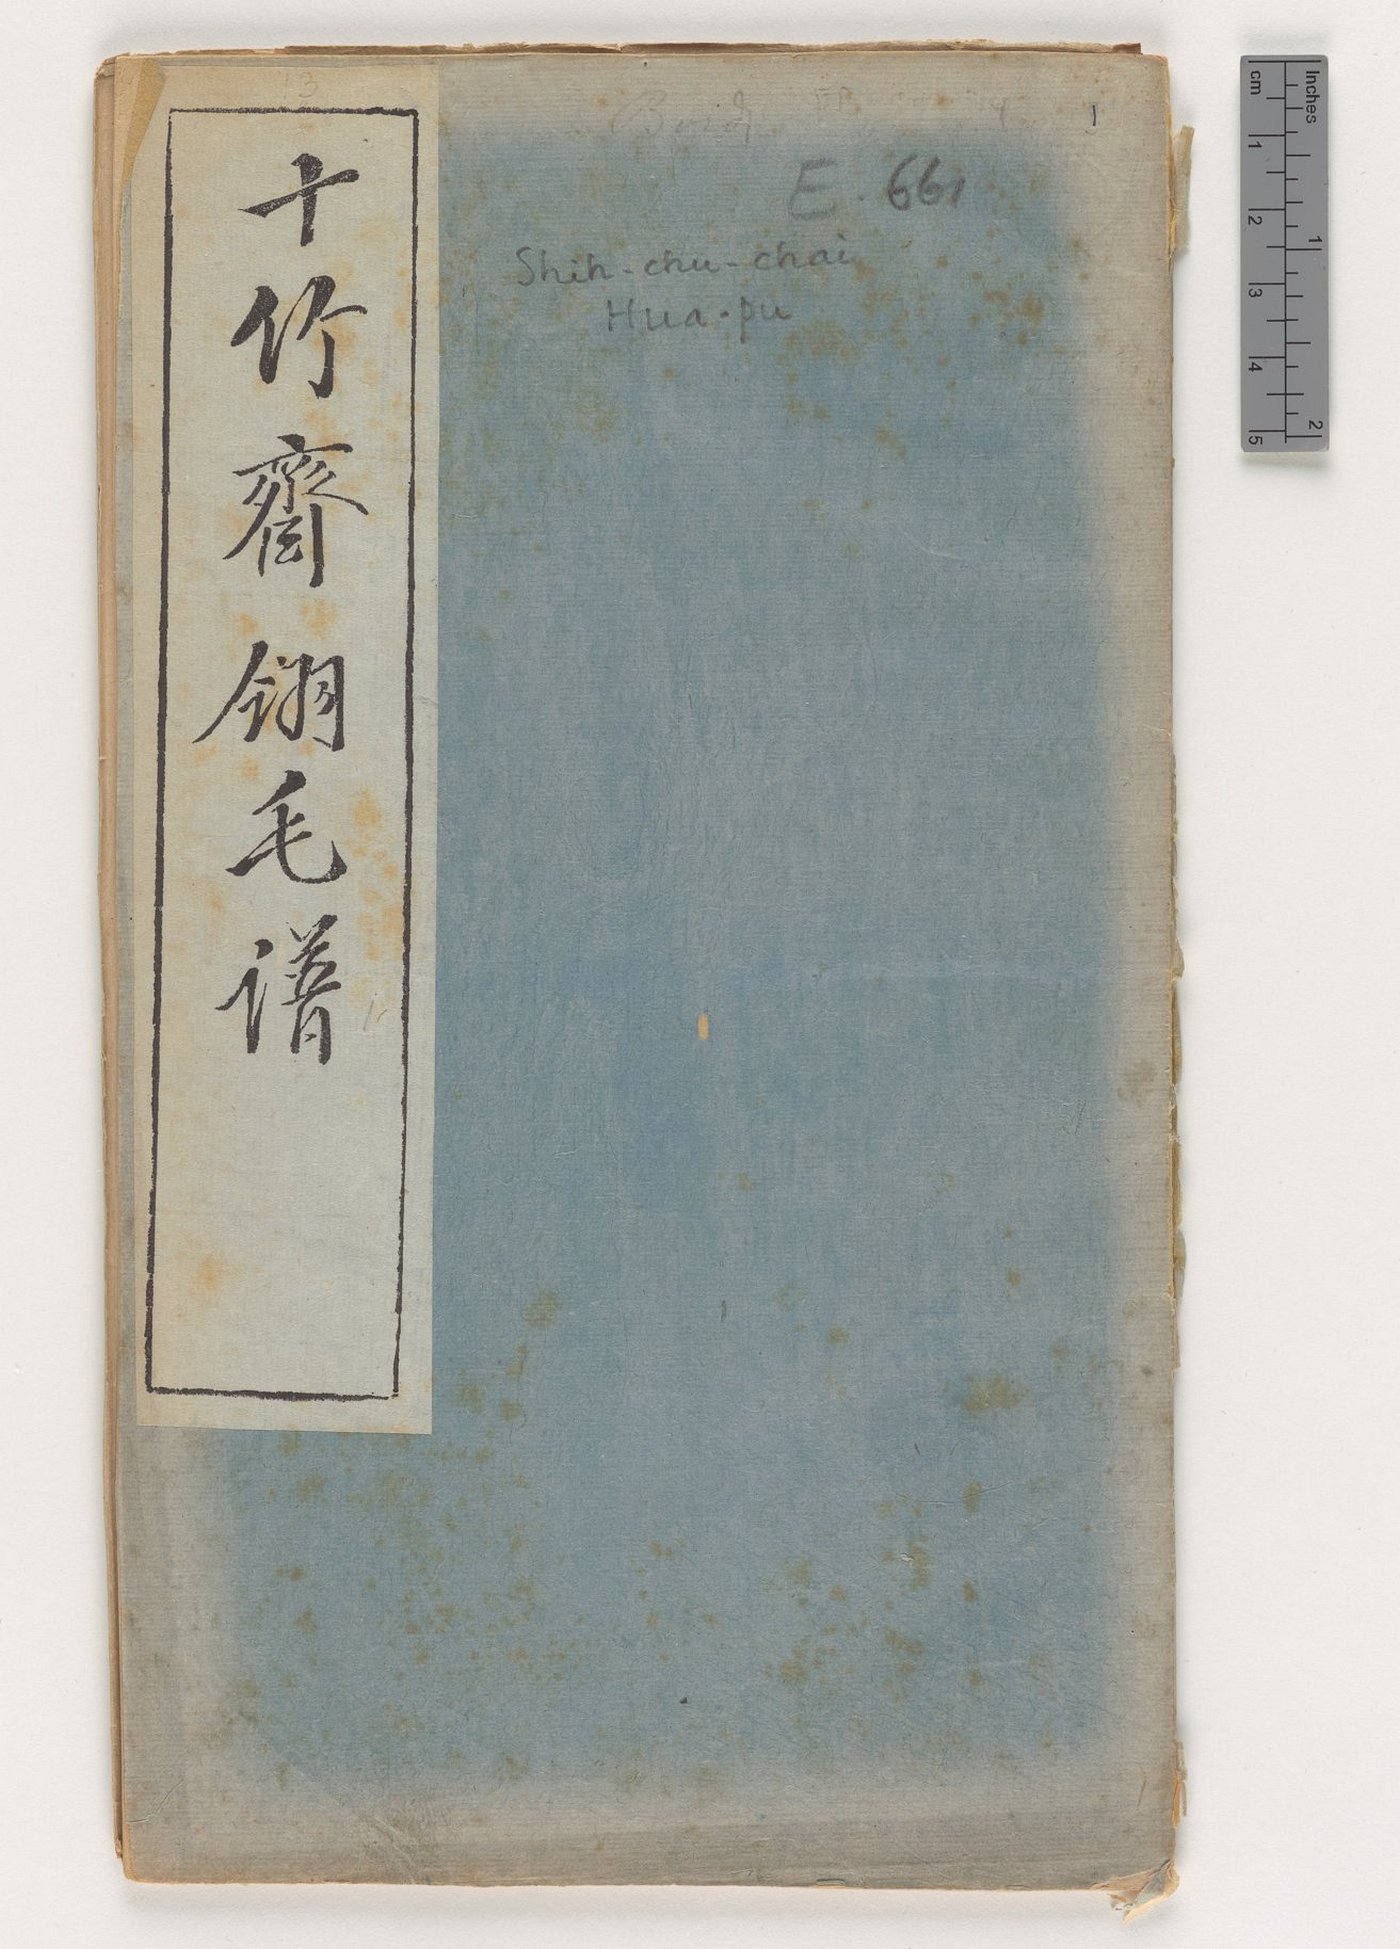 十竹齋翎毛譜
E. 661
Shih-chu-chai
Hua-pu
Inches
1
2
cm
1
2
3
4
5